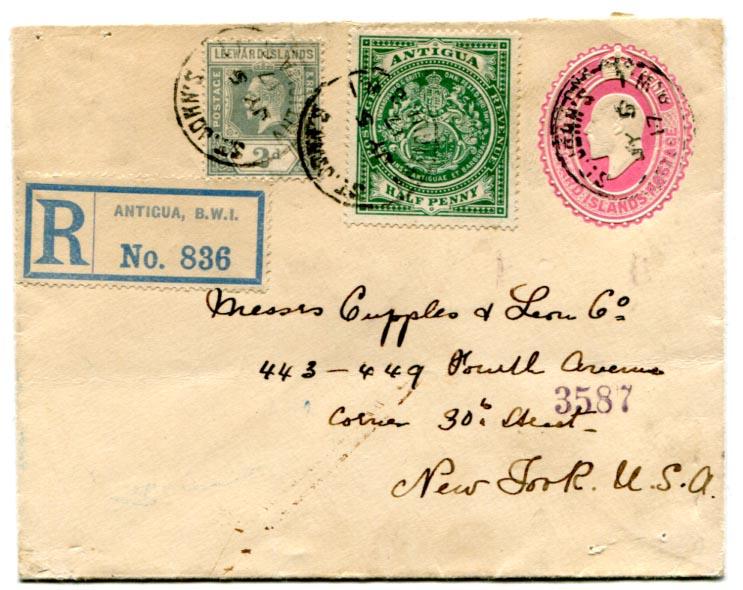 LEEWARD ISLANDS
POSTAGE
2d
ST. JOHN'S
ANTIGUA
REVENUE
HALF PENNY
ST. JOHN'S
ISLANDS POSTAGE
R
ANTIGUA, B.W.I.
No. 836
Messrs Cupples & Leon Co
443-449 Fourth Avenue
Corner 30th Street
3587
New York. U.S.A.